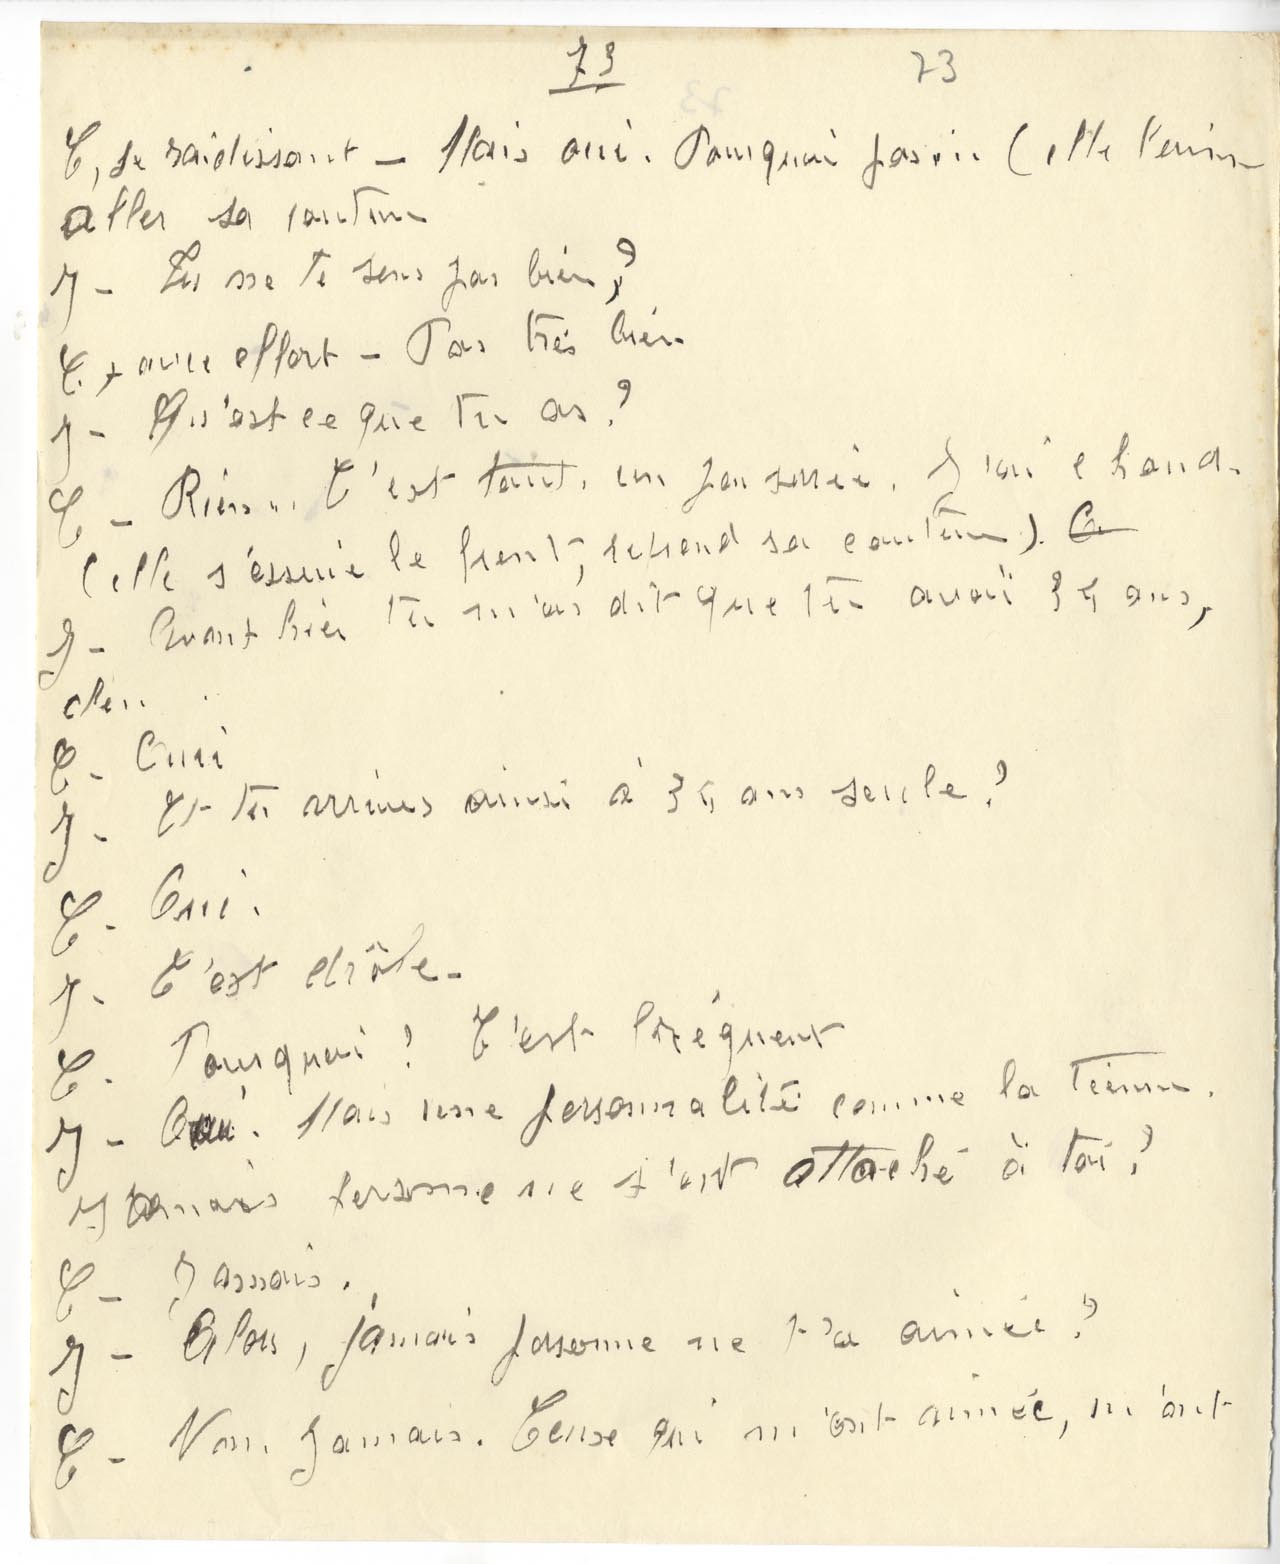 73 73
C, se raidissant - Mais oui. Pourquoi pas... (elle
aller sa couture
J - Tu ne te sens pas bien ?
C, avec effort - Pas très bien
J - Qu'est ce que tu as ?
C - Rien... C'est tout. un peu J'ai chaud.
(elle s'essuie le front, reprend sa couture).
J - Avant hier tu m'as dit que tu avais 35 ans,
C - Oui
J - Et tu arrives ainsi à 35 ans seule ?
C - Oui.
J - C'est drôle -
C - Pourquoi ? C'est fréquent
J - Oui. Mais une personnalité comme la tienne.
Jamais personne ne s'est attaché à toi ?
C - Jamais.
J - Alors, jamais personne ne t'a aimée ?
C - Non. Jamais. Ceux qui m'ont aimée, m'ont